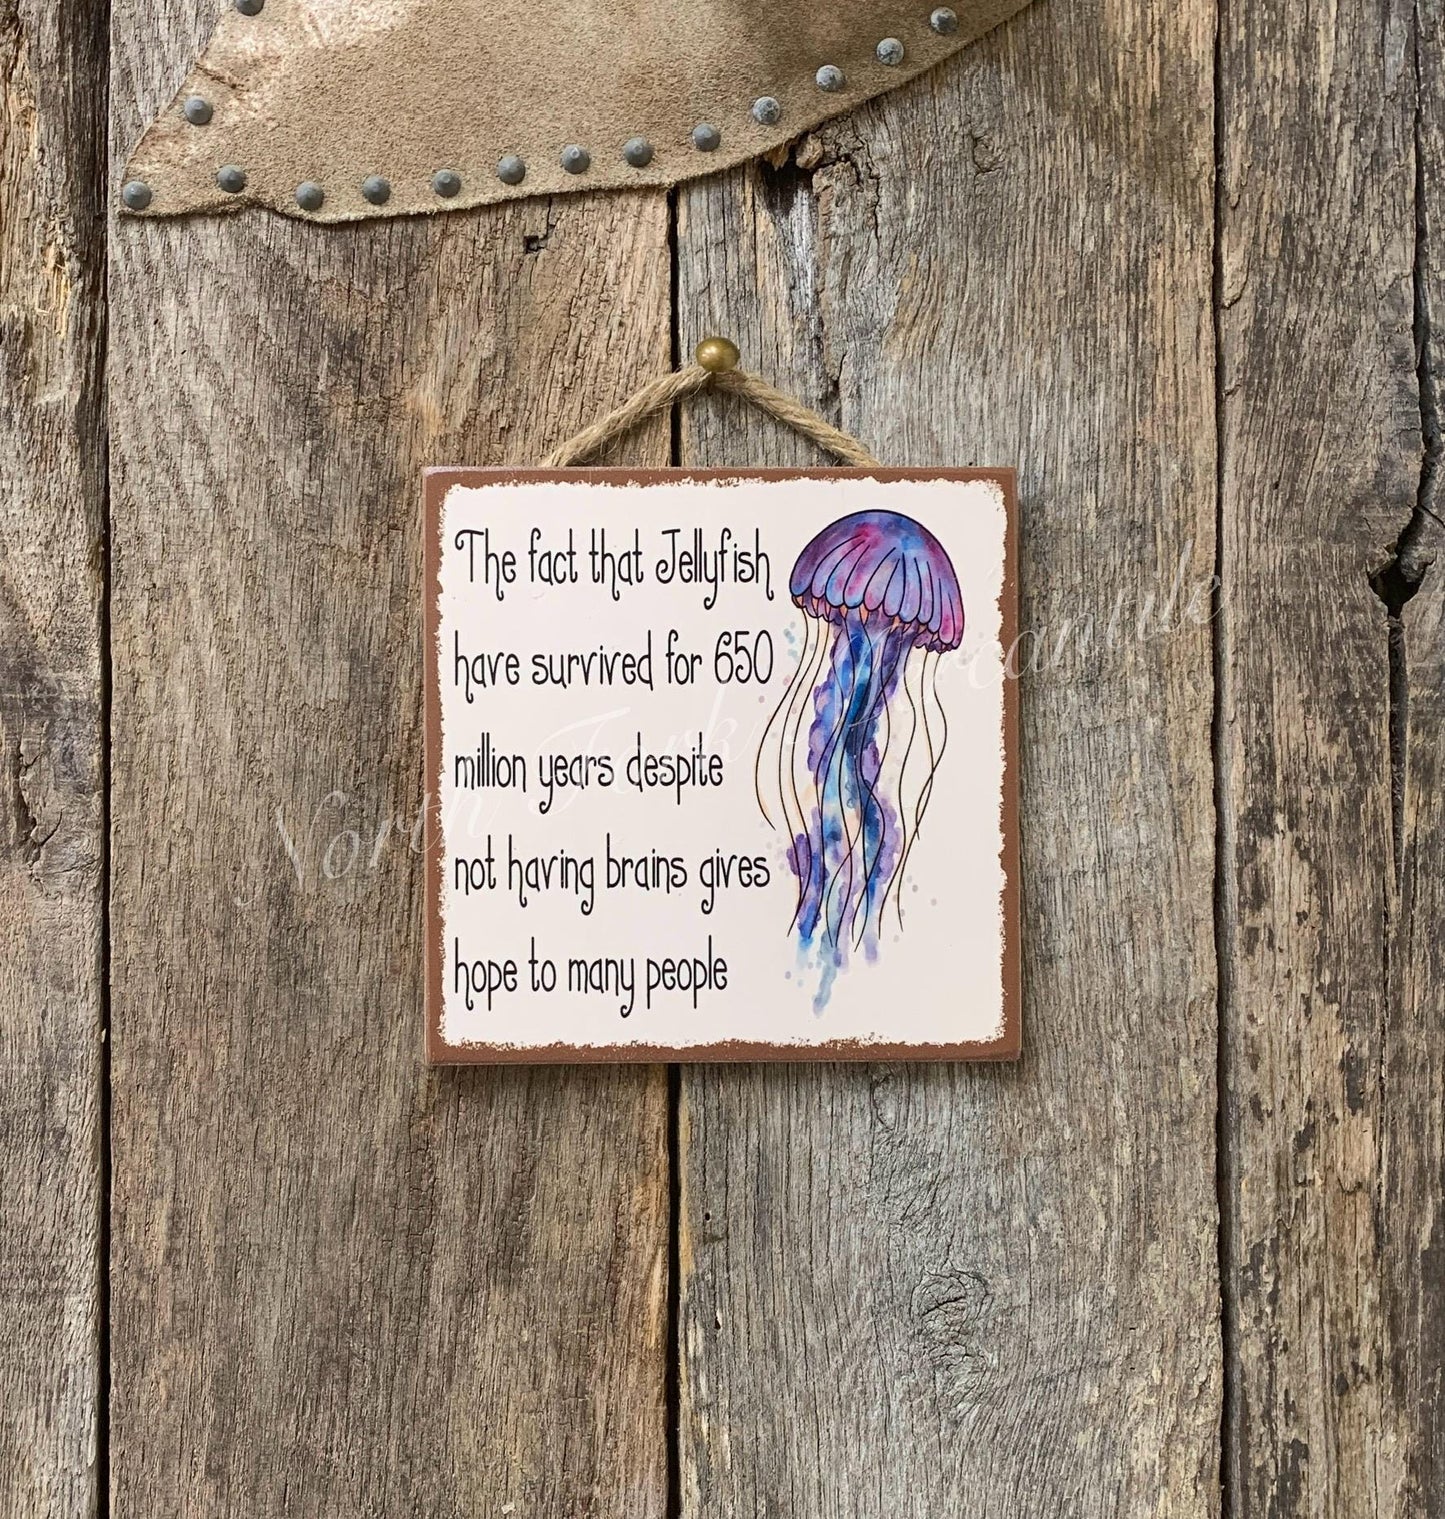 The fact that Jellyfish
have survived for 650
million years despite
not having brains gives
hope to many people
North Fork Mercantile